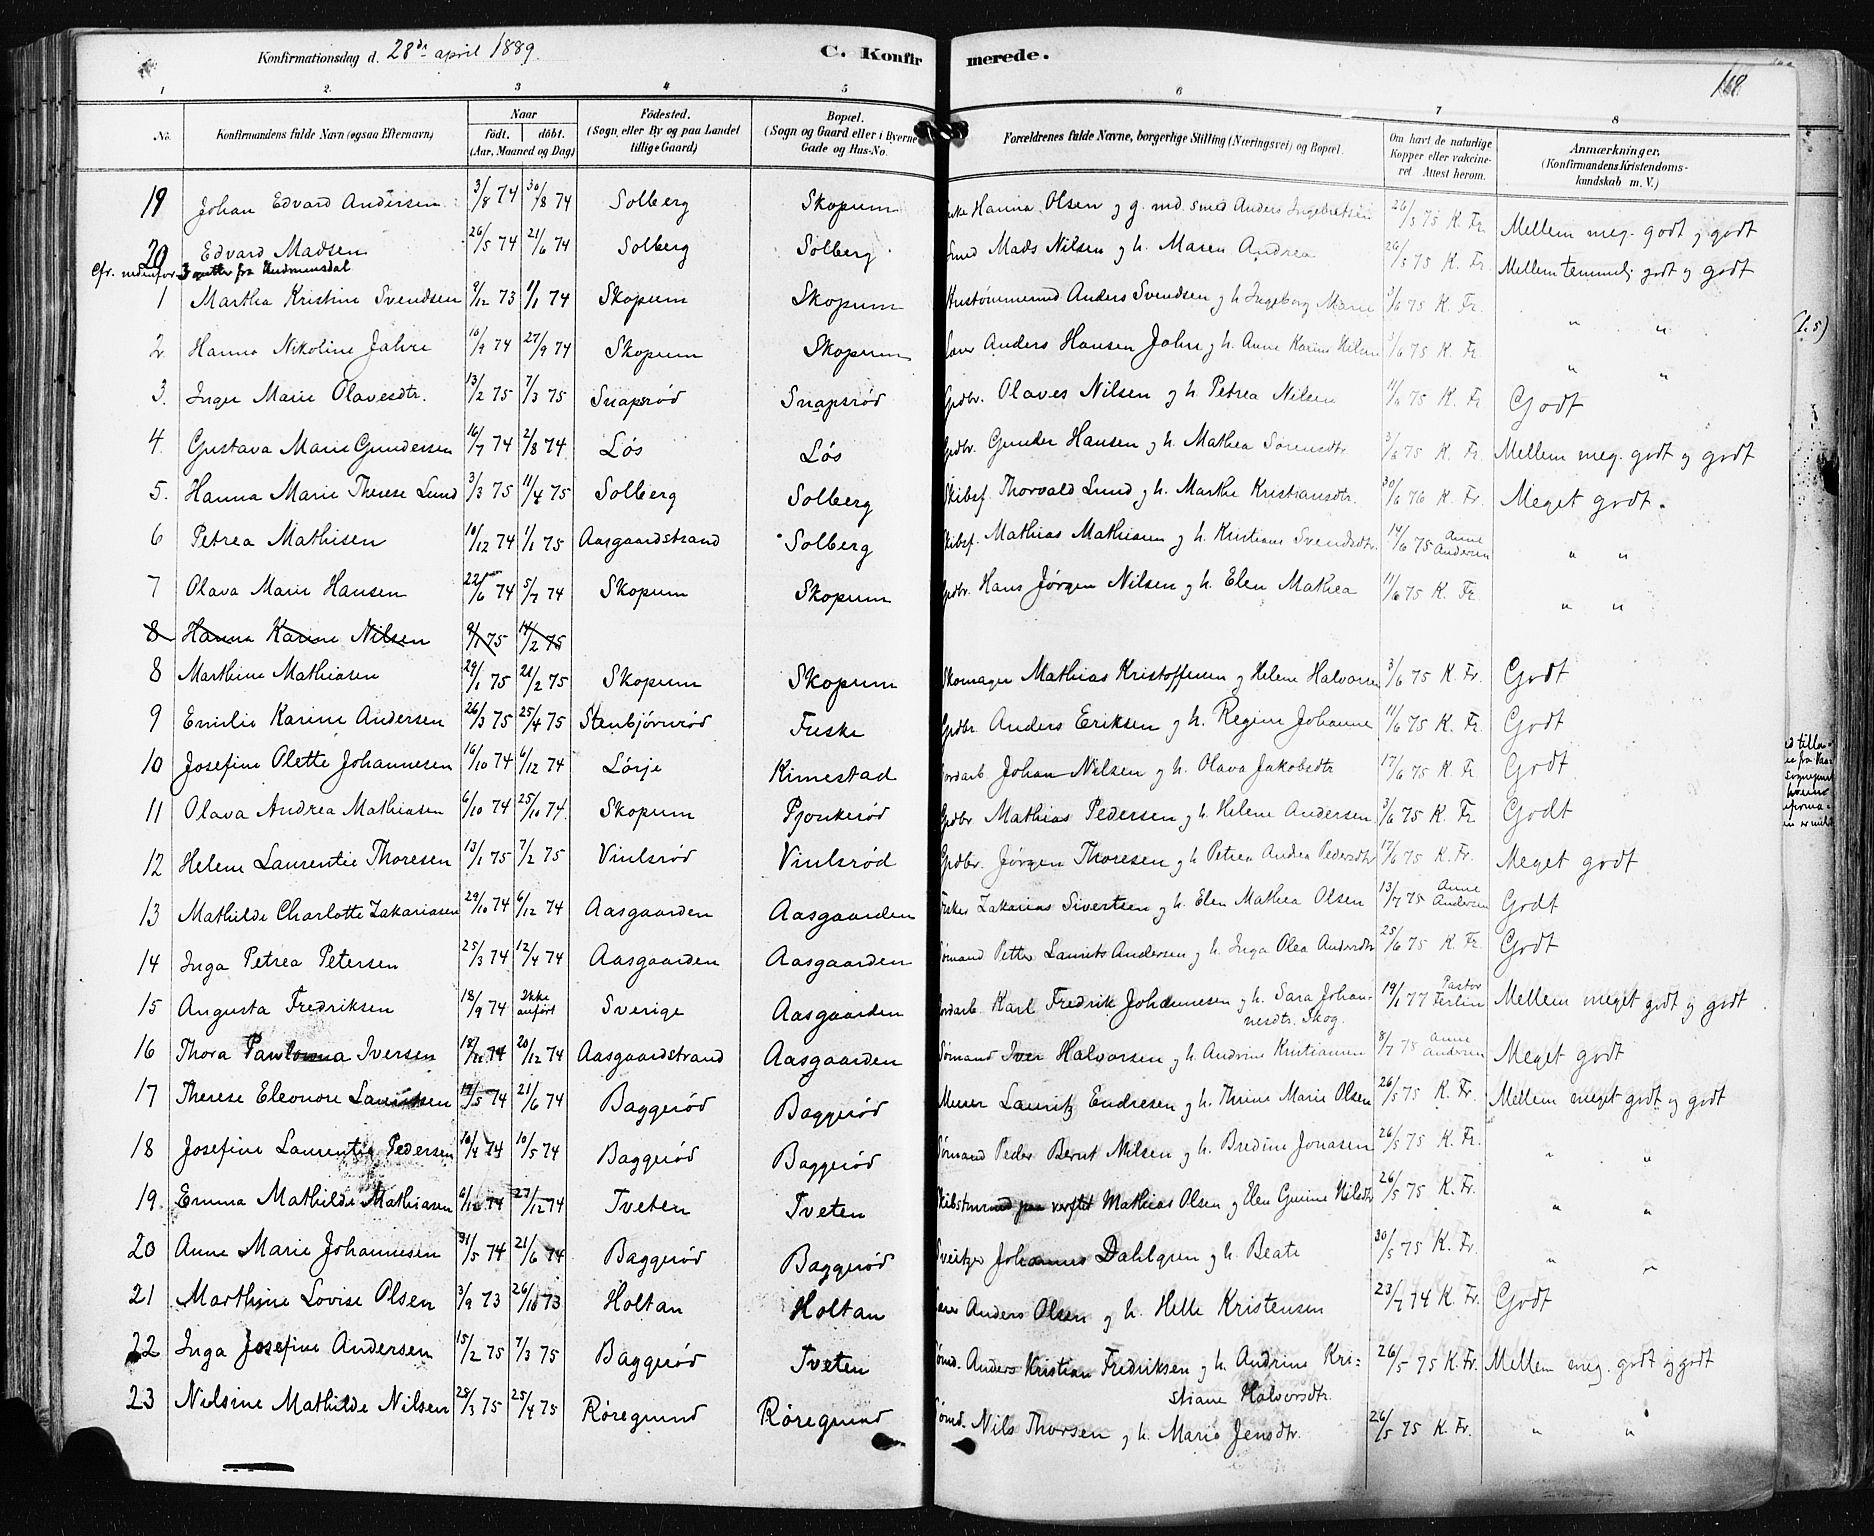 Konfirmationsdag d. 28de april 1889.
C. Konfirmerede.
168
1 2. 3 4 5 6 7 8
No. Konfirmandens fulde Navn (ogsaa Efternavn) Naar født. døbt. (Aar, Maaned og Dag) Fødested. (Sogn eller By og paa Landet tillige Gaard) Bopæl. (Sogn og Gaard eller i Byerne Gade og Hus-No. Forældrenes fulde Navne, borgerlige Stilling (Næringsvei) og Bopæl. Om havt de naturlige Kopper eller vakcineret. Attest herom. Anmærkninger, (Konfirmandens Kristendomskundskab m. V.)
19 Johan Edvard Andersen 3/8 74 30/8 74 Solberg Skopum Enke Hanna Olsen og g. md. smed Anders Ingebretsen 26/5 75 K. Fr. Mellem meg. godt og godt
20 Edvard Madsen 26/5 74 21/6 74 Solberg Solberg Smed Mads Nilsen og h. Maren Andrea 26/5 75 K. Fr. Mellem temmelig godt og godt
Cfr. nedenfor 3 gutter fra
1 Martha Kristine Svendsen 9/12 73 1/1 74 Skopum Skopum Hustømmermd Anders Svendsen og h Ingeborg Marie 3/6 75 K. Fr. " "
2 Hanna Nikoline Jahre 16/9 74 27/9 74 Skopum Skopum Anders Hansen Jahre og h. Anne Karine Nilsen 3/6 75 K. Fr. " "
3. Inger Marie Olavesdtr. 13/2 75 7/3 75 Snapsrød Snapsrød Grdbr. Olaves Nilsen og h Petrea Nilsen 11/6 75 K. Fr Godt
4. Gustava Marie Gundersen 16/7 74 2/8 74 Løs Løs Grdbr. Gunder Hansen og h. Mathea Sørensdtr 3/6 75 K. Fr. Mellem meg. godt og godt
5. Hanna Marie Therese Lund 3/3 75 11/4 75 Solberg Solberg Skibsf. Thorvald Lund og h. Marthe Kristiansdtr. 30/6 76 K. Fr. Meget godt.
6 Petrea Mathisen 10/12 74 1/1 75 Aasgaardstrand Solberg Skibsf. Mathias Mathiasen og h. Kristiane Svendsdtr. 14/6 75 Anne Andersen " "
7 Olava Marie Hansen 22/6 74 5/7 74 Skopum Skopum Grdbr. Hans Jørgen Nilsen og h. Elen Mathea 11/6 75 K. Fr. " "
8 Hanna Karine Nilsen 9/1 75 14/2 75
8 Marthine Mathiasen 29/1 75 21/2 75 Skopum Skopum Skomager Mathias Kristoffersen og Helene Halvorsen 3/6 75 K. Fr. Godt
9 Emilie Karine Andersen 26/3 75 25/4 75 Stenbjørnrød Fuske Grdbr Anders Eriksen og h. Regine Johanne 11/6 75 K. Fr. Godt
10 Josefine Olette Johannesen 16/10 74 6/12 74 Lørje Kimestad Jordarb. Johan Nilsen og h. Olava Jakobsdtr 17/6 75 K. Fr Godt
11 Olava Andrea Mathiasen 6/10 74 25/10 74. Skopum Pjonkerød Grdbr Mathias Pedersen og h. Helene Andersen 3/6 75 K. Fr Godt
12 Helene Laurentie Thoresen 13/1 75 7/2 75 Viulsrød Viulsrød Grdbr. Jørgen Thoresen og h Petrea Andrea Pedersdtr 17/6 75 K. Fr. Meget godt
13 Mathilde Charlotte Zakariasen 29/10 74 6/12 74 Aasgaarden Aasgaarden Fisker Zakarias Sivertsen og h. Elen Mathea Olsen 13/7 75 Anne Andersen Godt
14 Inga Petrea Petersen 25/3 74 12/4 74 Aasgaarden Aasgaarden Sømand Petter Laurits Andersen og h. Inga Olea Andersdtr 25/6 75 K. Fr. Godt
15 Augusta Fredriksen 18/9 74 Ikke anført Sverige Aasgaarden Jordarb. Karl Fredrik Johannesen og h. Sara Johannesdtr. Skog. 19/1 77 Pastor Mellem meget godt og godt.
16 Thora Iversen 18/11 74 20/12 74 Aasgaardstrand Aasgaarden Sømand Iver Halvorsen og h Andrine Kristiansen 8/7 78 Anne Andersen Meget godt
17 Therese Eleonore 19/5 74 21/6 74 Baggerød Baggerød Murer Lauritz Endresen og h. Thrine Marie Olsen 26/5 75 K. Fr. Mellem meget godt og godt
18 Josefine Laurentia Pedersen 10/4 74 10/5 74 Baggerød Baggerød Sømand Peder Bernt Nilsen og h. Bredine Jonasen 26/5 75 K. Fr. " "
19. Emma Mathilde Mathiasen 6/12 74 27/12 74 Tveten Tveten Skibstmrmd paa verftet Mathias Olsen og Elen Gurine Nilsdtr 26/5 75 K. Fr. " "
20 Anne Marie Johannesen 31/5 74 21/6 74 Baggerød Baggerød Sveitzer Johannes Dahlgren og h. Beate 30/5 75 K. Fr. " "
21 Marthine Lovise Olsen 3/9 73 26/10 73 Holtan Holtan Anders Olsen og h. Helle Kristensen 23/7 74 K Fr. Godt
22 Inga Josefine Andersen 15/2 75 7/3 75 Baggerød Tveten Sømd. Anders Kristian Fredriksen og h. Andrine Kristiane Halvorsdtr. 26/5 75 K. Fr. Mellem meg. godt og godt
23 Nielsine Mathilde Nilsen 28/3 75 25/4 75 Røregrund Røregrund Sømd. Nils Thorsen og h. Marie Jensdtr. 26/5 75 K. Fr. " "